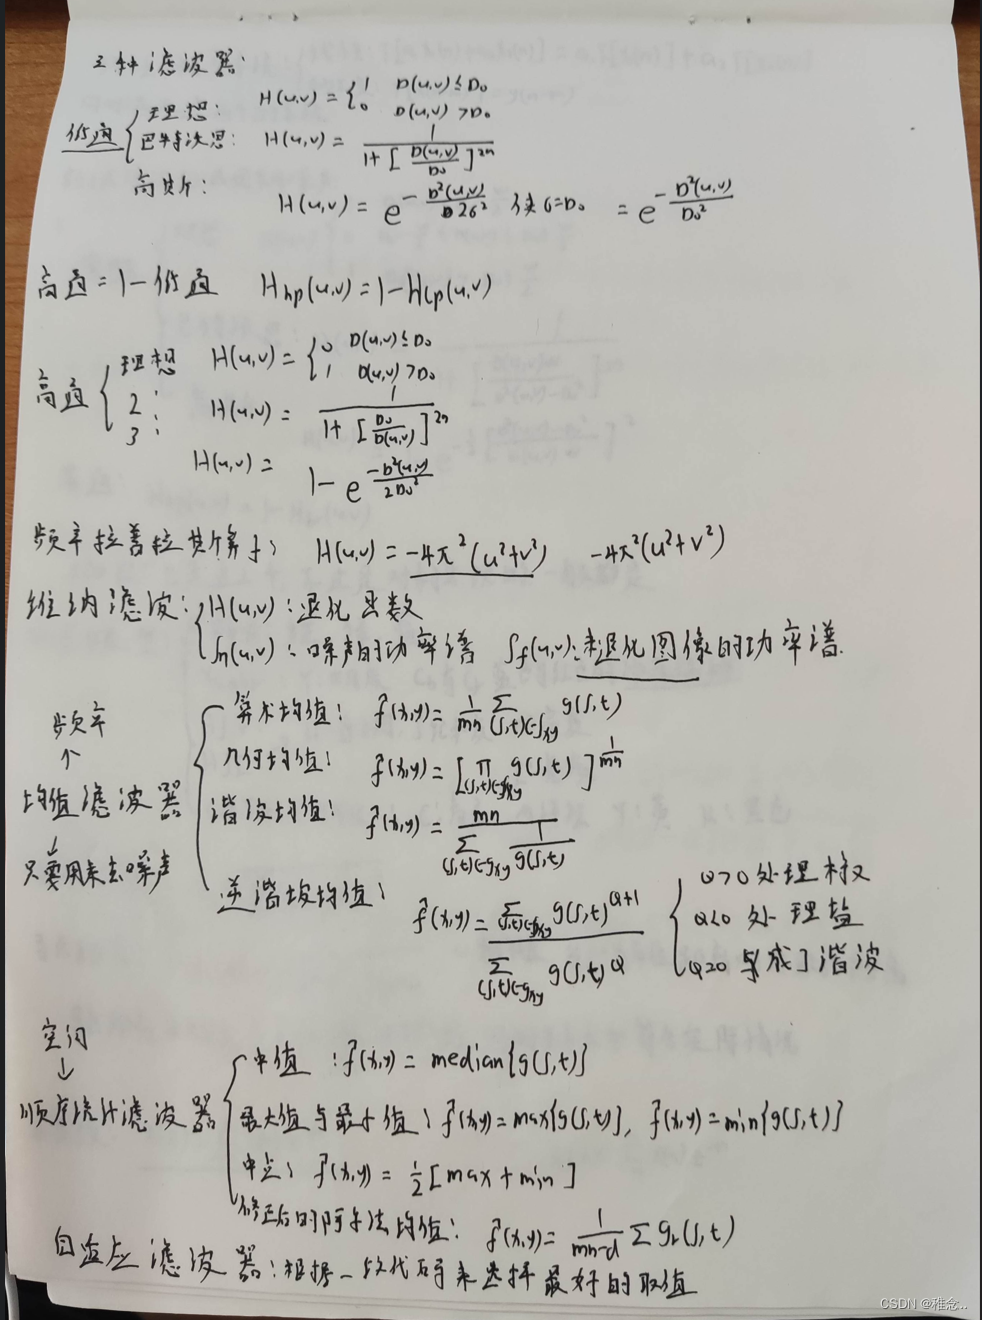 三种滤波器:
低通 { 理想: H(u,v) = { 1 D(u,v) ≤ D₀
0 D(u,v) > D₀
巴特沃思: H(u,v) = 1 / (1 + [D(u,v)/D₀]^2n)
高斯: H(u,v) = e^(-D²(u,v)/2σ²) 使σ=D₀ = e^(-D²(u,v)/D₀²)
高通 = 1 - 低通 H_hp(u,v) = 1 - H_Lp(u,v)
高通 { 理想 H(u,v) = { 0 D(u,v) ≤ D₀
1 D(u,v) > D₀
2: H(u,v) = 1 / (1 + [D₀/D(u,v)]^2n)
3: H(u,v) = 1 - e^(-D²(u,v)/2D₀²)
频率拉普拉斯算子: H(u,v) = -4π²(u²+v²) -4π²(u²+v²)
维纳滤波: { H(u,v): 退化函数
Sn(u,v): 噪声的功率谱 Sf(u,v): 未退化图像的功率谱.
频率
↑
均值滤波器
↓
只要用来去噪声
{ 算术均值: f̂(x,y) = 1/mn Σ_(s,t)∈Sxy g(s,t)
几何均值: f̂(x,y) = [∏_(s,t)∈Sxy g(s,t)]^(1/mn)
谐波均值: f̂(x,y) = mn / Σ_(s,t)∈Sxy 1/g(s,t)
逆谐波均值: f̂(x,y) = Σ_(s,t)∈Sxy g(s,t)^(Q+1) / Σ_(s,t)∈Sxy g(s,t)^Q
{ Q>0 处理椒
Q<0 处理盐
Q=0 变成了谐波
空间
↓
顺序统计滤波器
{ 中值: f̂(x,y) = median{g(s,t)}
最大值与最小值: f̂(x,y) = max{g(s,t)}, f̂(x,y) = min{g(s,t)}
中点: f̂(x,y) = 1/2 [max + min]
修正后的阿尔法均值: f̂(x,y) = 1/(mn-d) Σ gr(s,t)
自适应滤波器: 根据一段代码来选择最好的取值
CSDN @稚念..